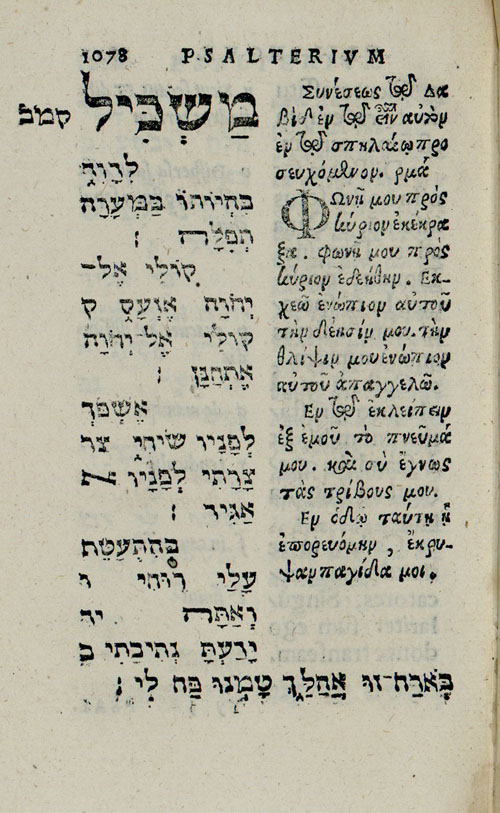 1078 PSALTERIVM
מַשְׂכִּיל קמב
לְדָוִד
בִּהְיוֹתוֹ בַמְּעָרָה
תְפִלָּה :
קוֹלִי אֶל־
יְהוָה אֶזְעָק ק
קוֹלִי אֶל יְהוָה
אֶתְחַנָּן :
אֶשְׁפֹּךְ
לְפָנָיו שִׂיחִי צר
צָרָתִי לְפָנָיו א
אַגִּיד :
בְּהִתְעַטֵּף
עָלַי רוּחִי ו
וְאַתָּה יד
יָדַעְתָּ נְתִיבָתִי ב
בְּאֹרַח־זוּ אֲהַלֵּךְ טָמְנוּ פַח לִי :
Συνέσεως τῷ Δα
βὶδ ἐν τῷ εἶναι αὐτὸν
ἐν τῷ σπηλαίῳ προ
σευχόμενον. ρμά
ΦΩνῇ μου πρὸς
κύριον ἐκέκρα
ξα. φωνῇ μου πρὸς
κύριον ἐδεήθην. Ἐκ-
χεῶ ἐνώπιον αὐτοῦ
τὴν δέησίν μου. τὴν
θλίψιν μου ἐνώπιον
αὐτοῦ ἀπαγγελῶ.
Ἐν τῷ ἐκλείπειν
ἐξ ἐμοῦ τὸ πνεῦμά
μου. καὶ σὺ ἔγνως
τὰς τρίβους μου.
Ἐν ὁδῷ ταύτῃ ᾗ
ἐπορευόμην, ἔκρυ-
ψαν παγίδα μοι.